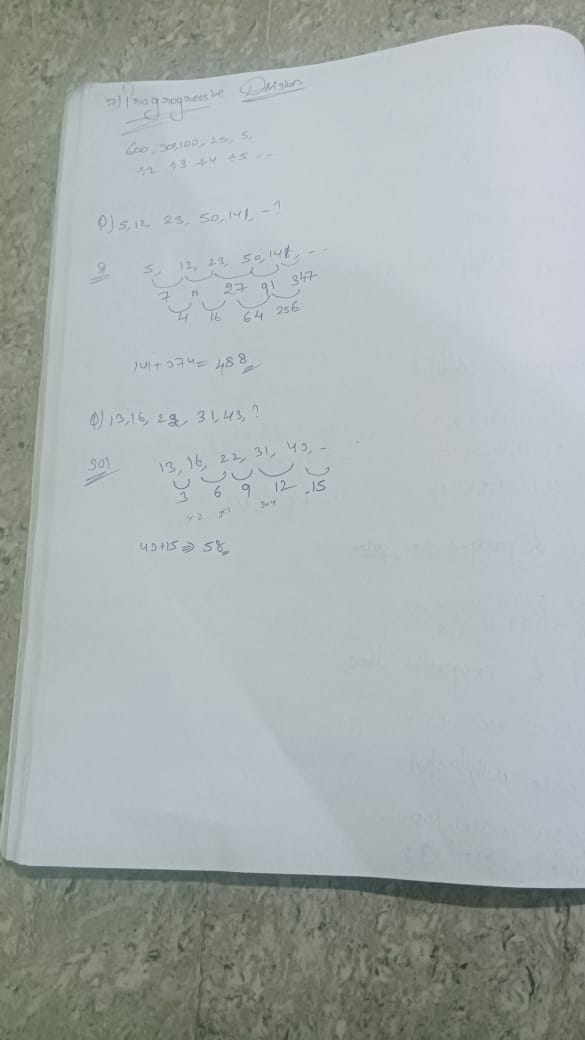 7) Progrogressive Division
600, 300, 100, 25, 5,
÷2 ÷3 ÷4 ÷5 ...
Q) 5, 12, 23, 50, 141, -?
5, 12, 23, 50, 141, ...
7 11 27 91 347
4 16 64 256
= 488
Q) 13, 16, 22, 31, 43, ?
Sol
13, 16, 22, 31, 43, -
3 6 9 12 15
43+15 ⇒ 58